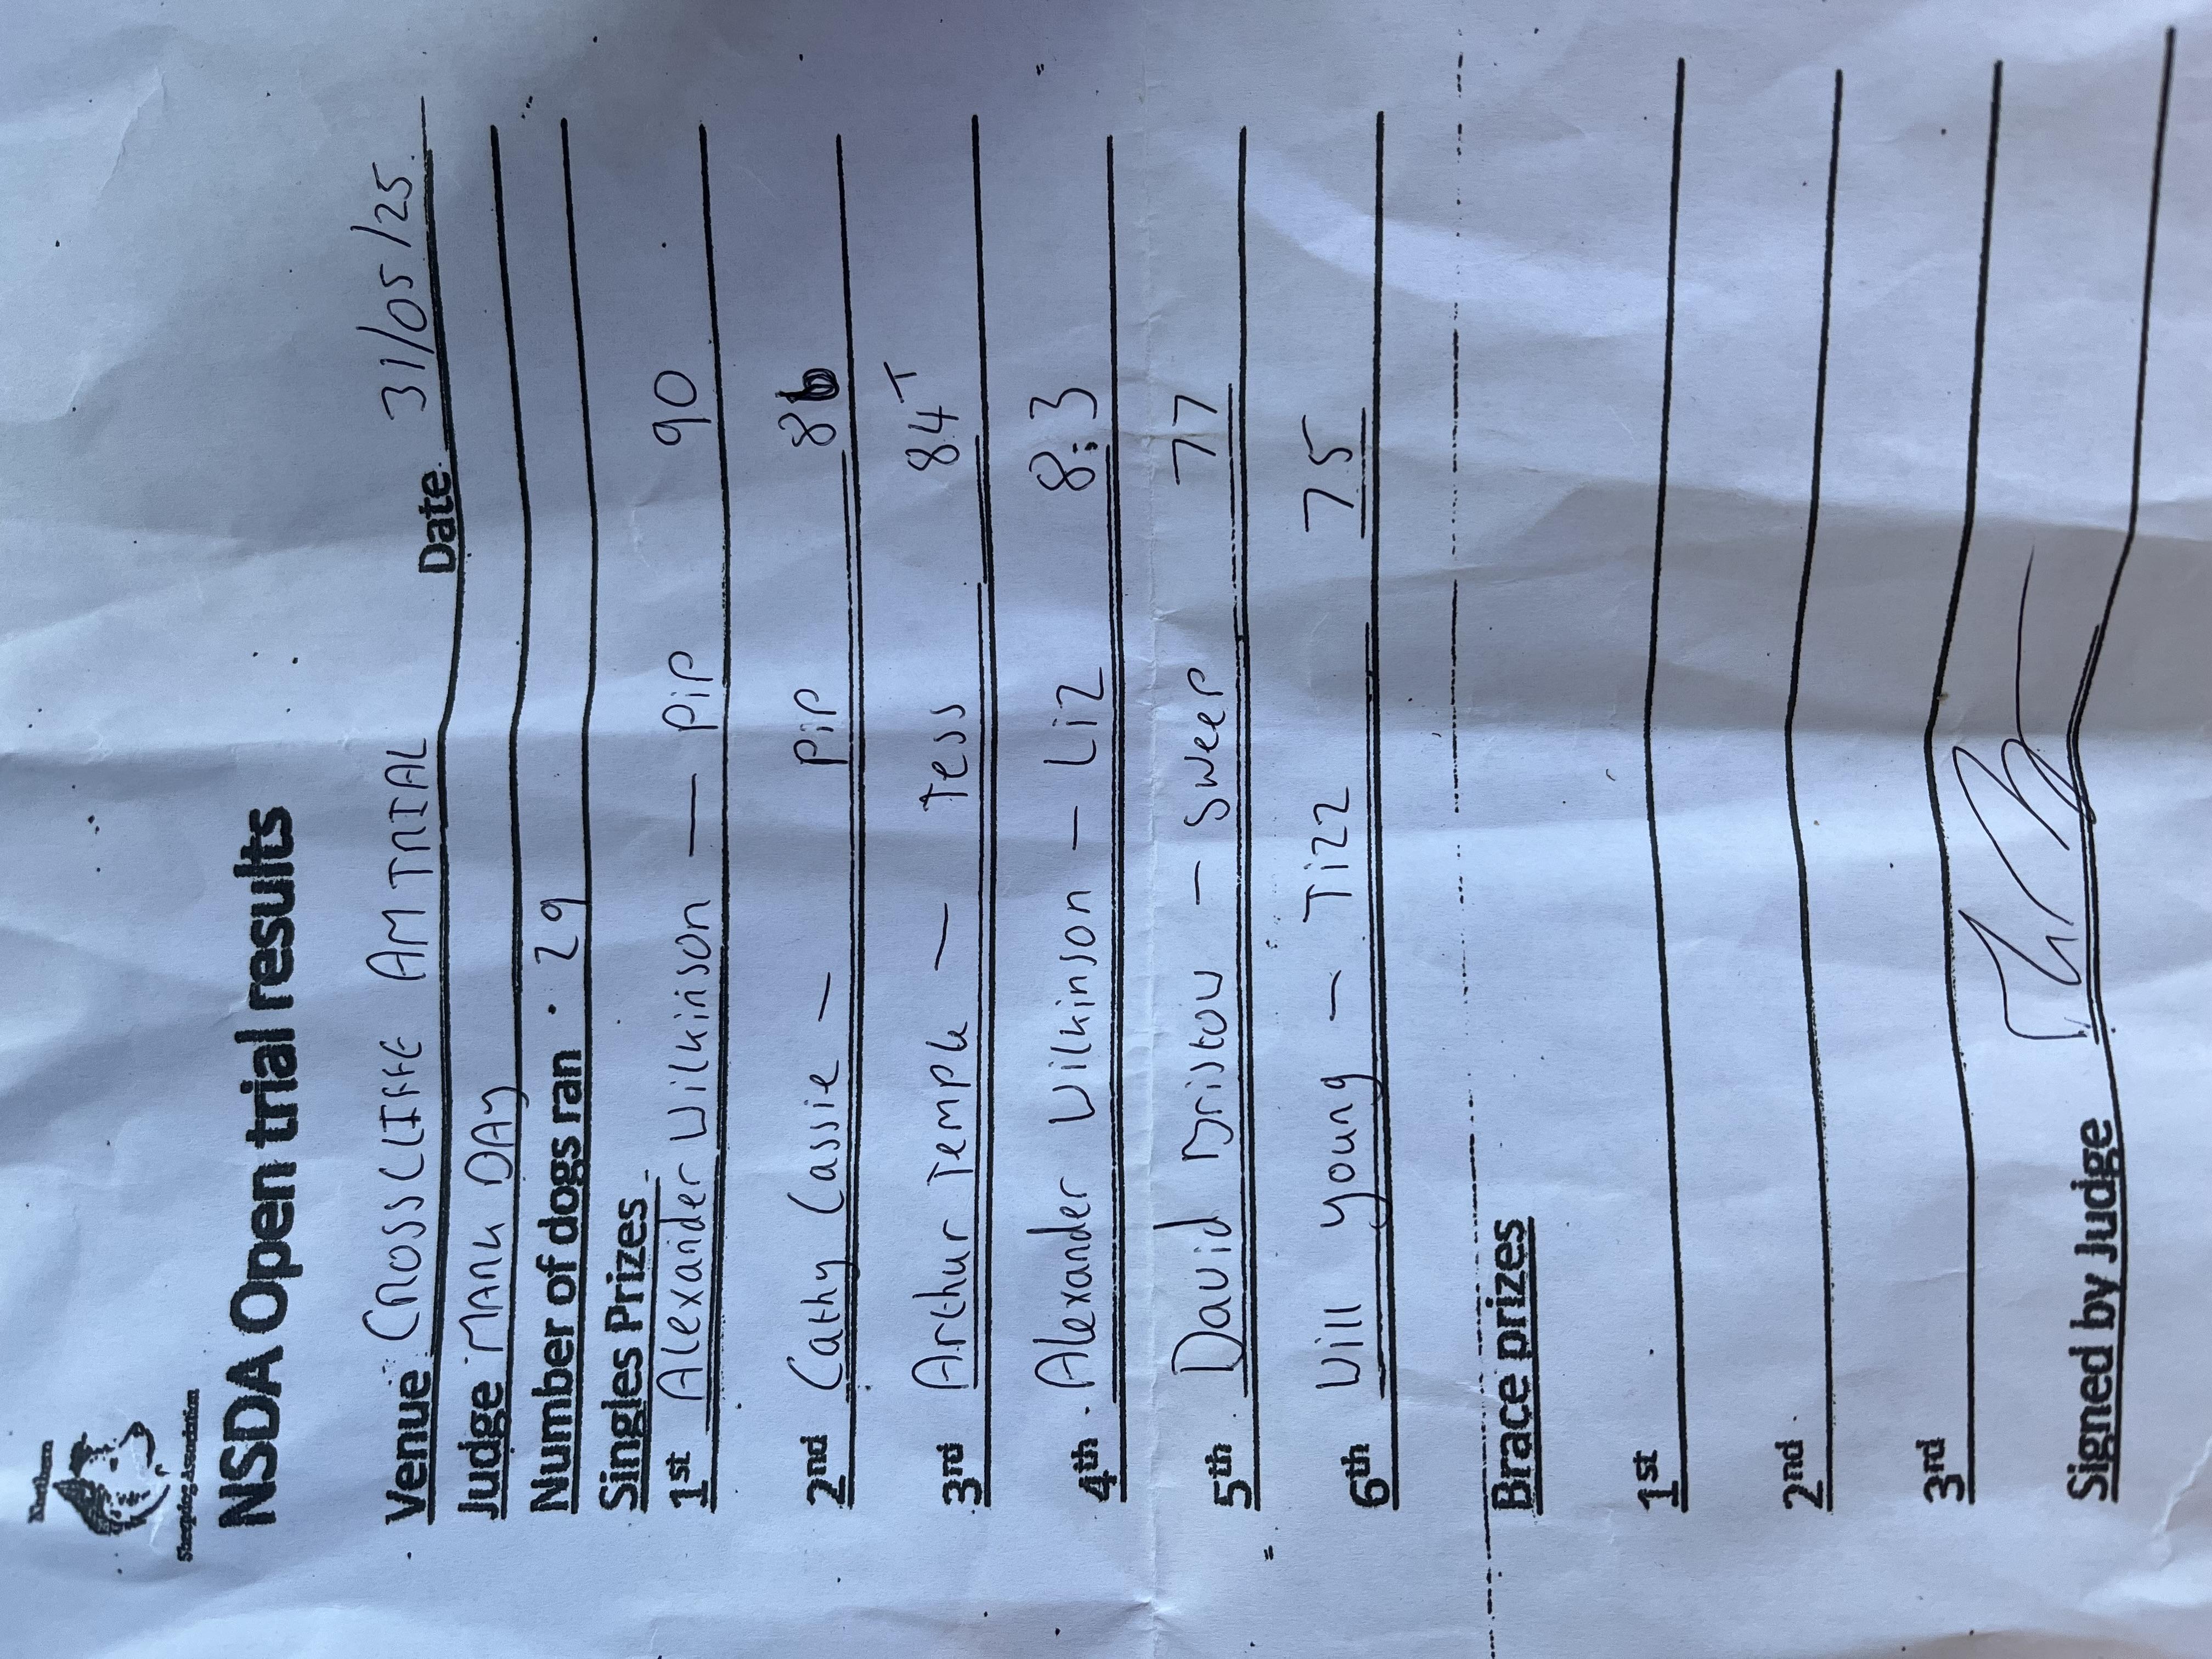 Northern
Sheepdog Association
NSDA Open trial results
Venue CROSSCLIFFE AM TRIAL Date 31/05/25
Judge MARK DAY
Number of dogs ran 29
Singles Prizes
1st Alexander Wilkinson — Pip 90
2nd Cathy Cassie — Pip 86
3rd Arthur Temple — Tess 84 T
4th Alexander Wilkinson — Liz 8:3
5th David Bristow — Sweep 77
6th Will Young — Tizz 75
Brace prizes
1st
2nd
3rd
Signed by Judge